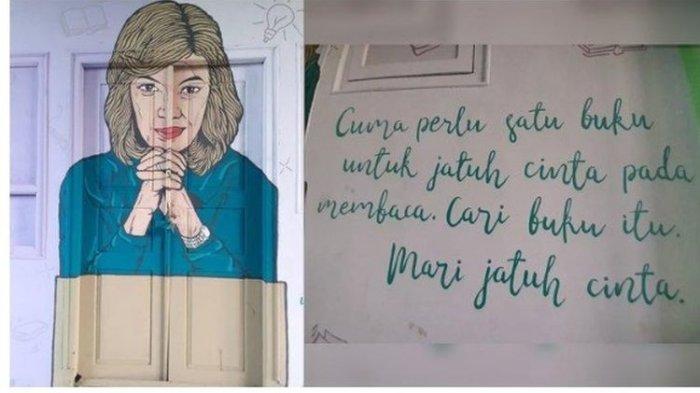 Cuma perlu satu buku
untuk jatuh cinta pada
membaca. Cari buku itu.
Mari jatuh cinta.